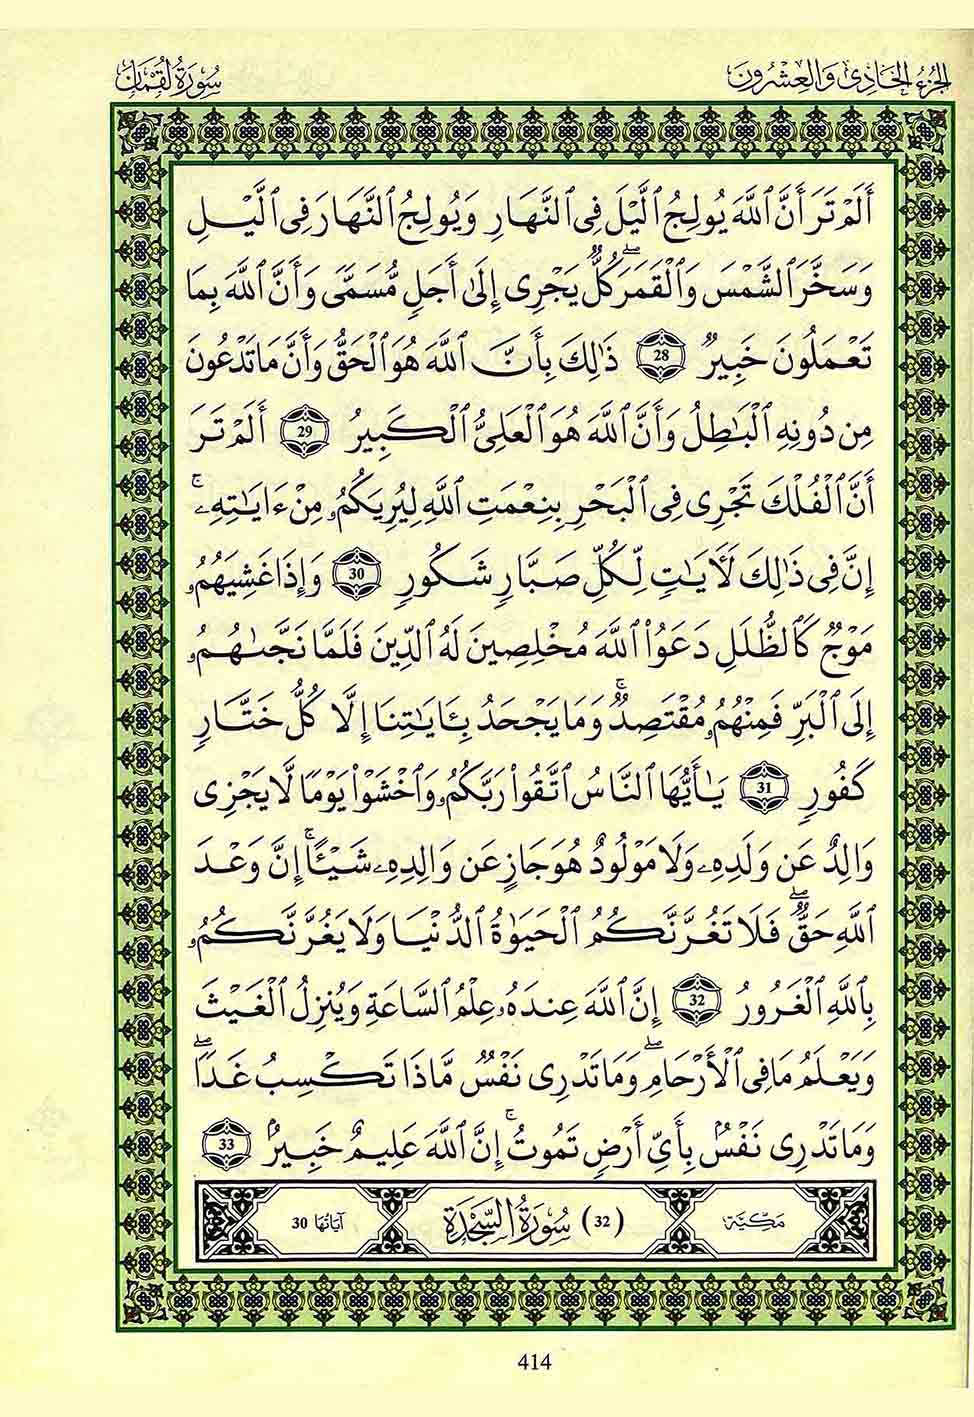 الجزء الحادي والعشرون
سورة لقمان
أَلَمْ تَرَ أَنَّ ٱللَّهَ يُولِجُ ٱلَّيْلَ فِى ٱلنَّهَارِ وَيُولِجُ ٱلنَّهَارَ فِى ٱلَّيْلِ
وَسَخَّرَ ٱلشَّمْسَ وَٱلْقَمَرَۖ كُلٌّ يَجْرِىٓ إِلَىٰٓ أَجَلٍ مُّسَمًّى وَأَنَّ ٱللَّهَ بِمَا
تَعْمَلُونَ خَبِيرٌ 28 ذَٰلِكَ بِأَنَّ ٱللَّهَ هُوَ ٱلْحَقُّ وَأَنَّ مَا تَدْعُونَ
مِن دُونِهِ ٱلْبَٰطِلُ وَأَنَّ ٱللَّهَ هُوَ ٱلْعَلِىُّ ٱلْكَبِيرُ 29 أَلَمْ تَرَ
أَنَّ ٱلْفُلْكَ تَجْرِى فِى ٱلْبَحْرِ بِنِعْمَتِ ٱللَّهِ لِيُرِيَكُمُۥ مِنْ ءَايَٰتِهِۦۚ
إِنَّ فِى ذَٰلِكَ لَءَايَٰتٍ لِّكُلِّ صَبَّارٍ شَكُورٍ 30 وَإِذَا غَشِيَهُمُۥ
مَوْجٌ كَٱلظُّلَلِ دَعَوُا۟ ٱللَّهَ مُخْلِصِينَ لَهُ ٱلدِّينَ فَلَمَّا نَجَّىٰهُمُۥ
إِلَى ٱلْبَرِّ فَمِنْهُمُۥ مُقْتَصِدٌۚ وَمَا يَجْحَدُ بِـَٔايَٰتِنَا إِلَّا كُلُّ خَتَّارٍ
كَفُورٍ 31 يَٰٓأَيُّهَا ٱلنَّاسُ ٱتَّقُوا۟ رَبَّكُمُۥ وَٱخْشَوْا۟ يَوْمًا لَّا يَجْزِى
وَالِدٌ عَن وَلَدِهِۦ وَلَا مَوْلُودٌ هُوَ جَازٍ عَن وَالِدِهِۦ شَيْـًٔاۚ إِنَّ وَعْدَ
ٱللَّهِ حَقٌّۖ فَلَا تَغُرَّنَّكُمُ ٱلْحَيَوٰةُ ٱلدُّنْيَا وَلَا يَغُرَّنَّكُمُۥ
بِٱللَّهِ ٱلْغَرُورُ 32 إِنَّ ٱللَّهَ عِندَهُۥ عِلْمُ ٱلسَّاعَةِ وَيُنزِلُ ٱلْغَيْثَ
وَيَعْلَمُ مَا فِى ٱلْأَرْحَامِۖ وَمَا تَدْرِى نَفْسٌ مَّاذَا تَكْسِبُ غَدًاۖ
وَمَا تَدْرِى نَفْسٌۢ بِأَىِّ أَرْضٍ تَمُوتُۚ إِنَّ ٱللَّهَ عَلِيمٌ خَبِيرٌۢ 33
مكية (32) سورة السجدة آياتها 30
414